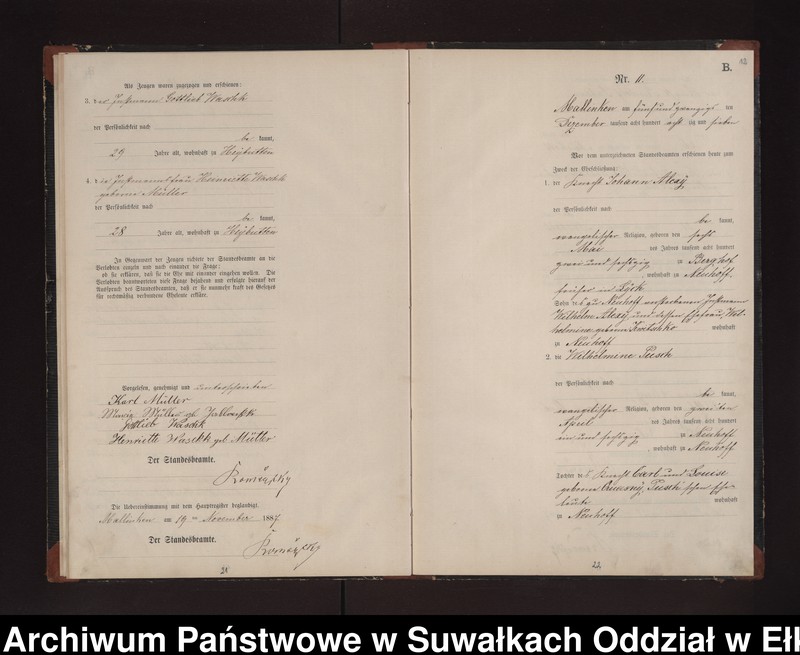 Als Zeugen waren zugezogen und erschienen:
3. der Instmann Gottlieb Waschk
der Persönlichkeit nach
be kannt,
29 Jahre alt, wohnhaft zu Heybutten
4. die Instmannsfrau Henriette Waschk
geborne Müller
der Persönlichkeit nach
be kannt,
28 Jahre alt, wohnhaft zu Heybutten
In Gegenwart der Zeugen richtete der Standesbeamte an die
Verlobten einzeln und nach einander die Frage:
ob sie erklären, daß sie die Ehe mit einander eingehen wollen. Die
Verlobten beantworteten diese Frage bejahend und erfolgte hierauf der
Ausspruch des Standesbeamten, daß er sie nunmehr kraft des Gesetzes
für rechtmäßig verbundene Eheleute erkläre.
Vorgelesen, genehmigt und unterschrieben
Karl Müller
Marie Müller gb.
Gottlieb Waschk
Henriette Waschk geb Müller
Der Standesbeamte.
Die Uebereinstimmung mit dem Hauptregister beglaubigt.
Mallenken am 19 ten November 1887
Der Standesbeamte.
21
B.
Nr. 11.
Mallenken am fünfundzwanzigs ten
Dezember tausend acht hundert acht zig und sieben
Vor dem unterzeichneten Standesbeamten erschienen heute zum
Zweck der Eheschließung:
1. der Knecht Johann Alexy
der Persönlichkeit nach
be kannt,
evangelischer Religion, geboren den sechs ten
Mai des Jahres tausend acht hundert
zwei und sechszig zu Berghof
, wohnhaft zu Neuhoff
früher in Lyck
Sohn des zu Neuhoff verstorbenen Instmann
Wilhelm Alexy und dessen Ehefrau, Wil-
helmine geborne wohnhaft
zu Neuhoff
2. die Wilhelmine Piesch
der Persönlichkeit nach
be kannt,
evangelischer Religion, geboren den zweiten
April des Jahres tausend acht hundert
ein und sechszig zu Neuhoff
, wohnhaft zu Neuhoff
Tochter der Knecht Carl und Louise
geborne Piesch schen Ehe-
leute wohnhaft
zu Neuhoff
22
Archiwum Państwowe w Suwałkach Oddział w Ełk